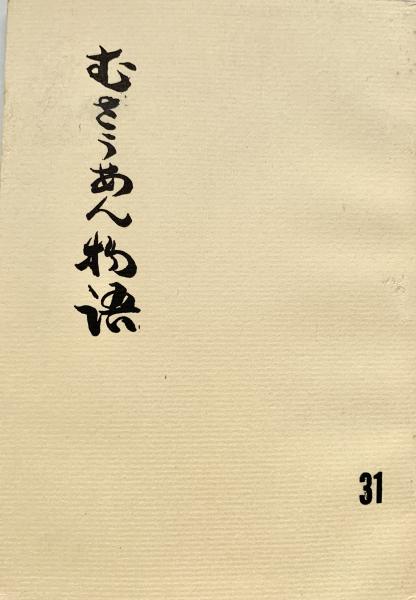 むさうあん物語
31